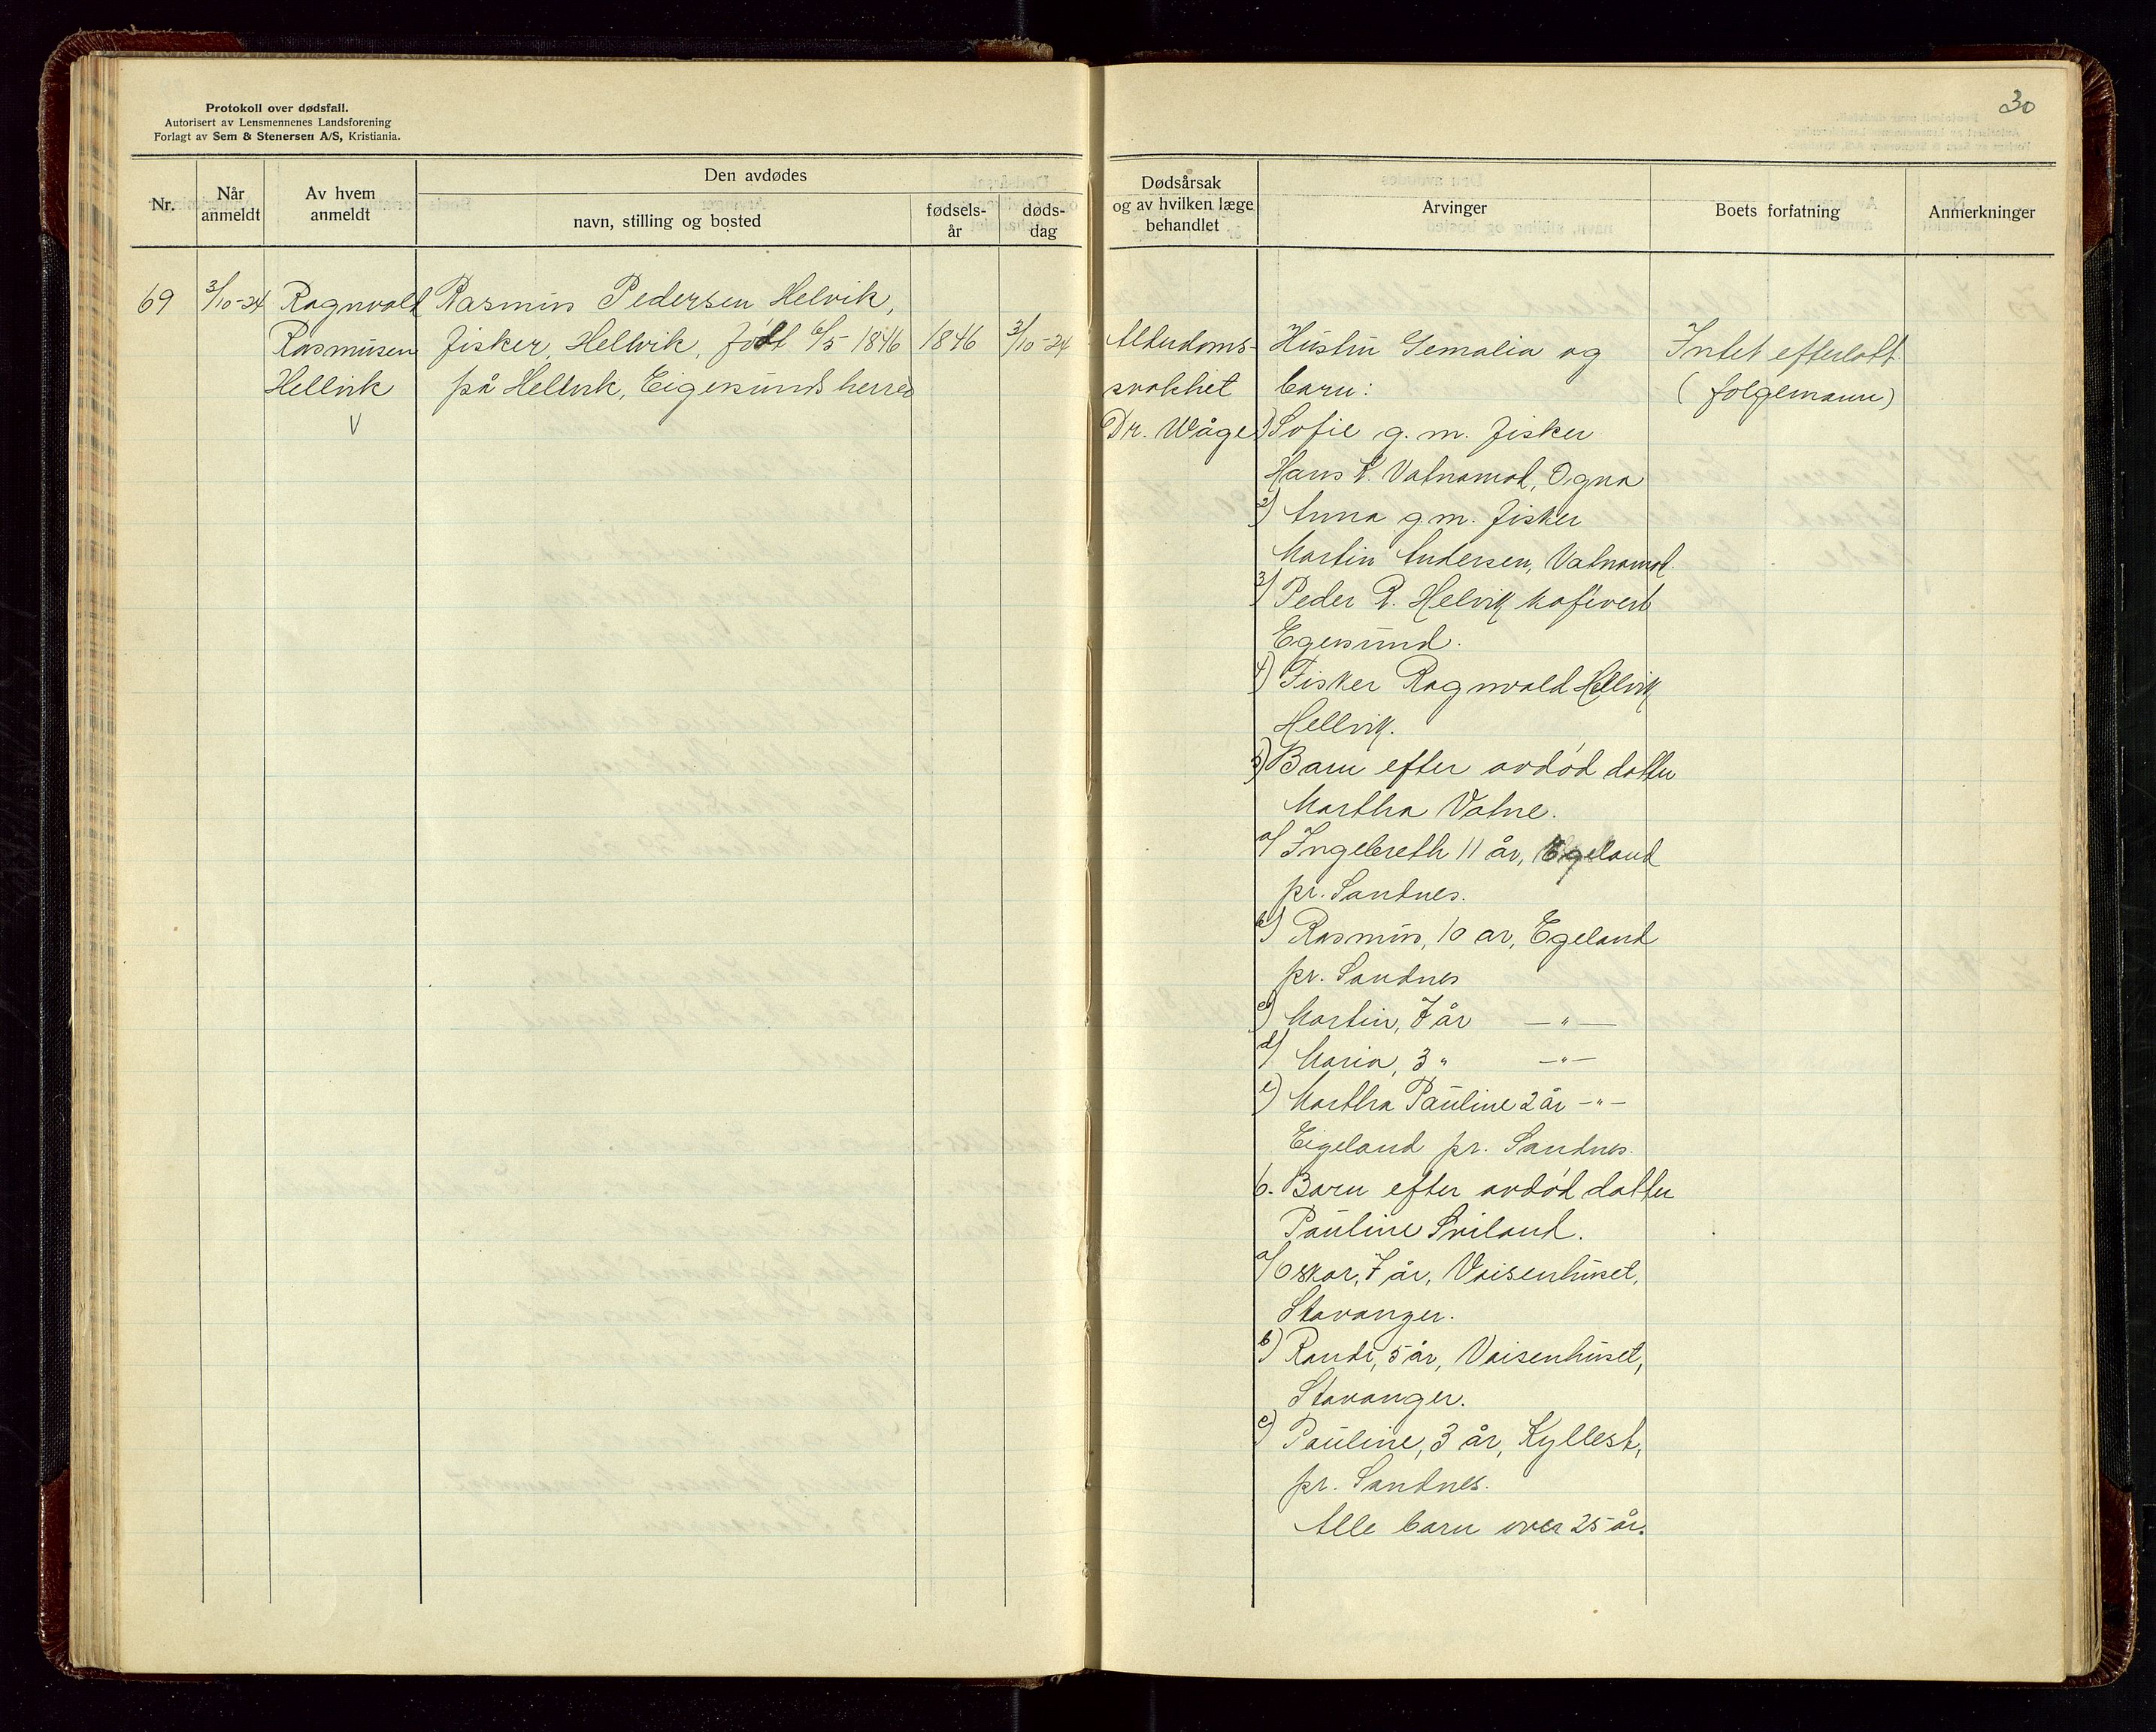 30
Protokoll over dødsfall.
Autorisert av Lensmennenes Landsforening
Forlagt av Sem & Stenersen A/S, Kristiania.
Nr.
Når anmeldt
Av hvem anmeldt
Den avdødes
navn, stilling og bosted
fødsels-år
døds-dag
Dødsårsak og av hvilken læge behandlet
Arvinger
Boets forfatning
Anmerkninger
69
3/10-24
Ragnvald
Rasmusen
Hellvik
V
Rasmus Pedersen Helvik,
fisker, Hellvik, født 6/5 1846
på Hellvik, Eigersunds herred
1846
3/10-24
Alderdoms-
svakhet
Dr. Wåge
Hustru Gemalia og
barn:
1) Sofie g. m. fisker
Hans K. Vatnamot, Ogna
2) Anna g. m. fisker
Martin Andersen, Vatnamot.
3) Peder R. Helvik kafévert
Egersund.
4) Fisker Ragnvald Hellvik
Hellvik.
5) Barn efter avdød datter
Martha Vatne.
a) Ingebreth 11 år, Egeland
pr. Sandnes.
b) Rasmus, 10 ar, Egeland
pr. Sandnes
c) Martin, 7 år —"—
d) Maria, 3 " —"—
e) Martha Pauline 2 år —"—
Eigeland pr. Sandnes.
6. Barn efter avdød datter
Pauline Sviland.
a) Oskar, 7 år, Vaisenhuset,
Stavanger.
b) Randi, 5 år, Vaisenhuset,
Stavanger.
c) Pauline, 3 år, Kyllest,
pr. Sandnes.
Alle barn over 25 år.
Intet efterlatt
(følgemann)